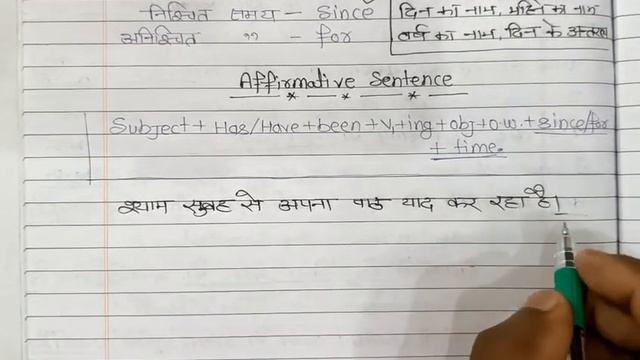 निश्चित समय – Since
अनिश्चित " – for
दिन का नाम, महिने का नाम
वर्ष का नाम, दिन के
Affirmative Sentence
Subject + Has/Have + been + V₁ + ing + obj + o.w. + since/for
+ time.
श्याम सुबह से अपना पाठ याद कर रहा है।